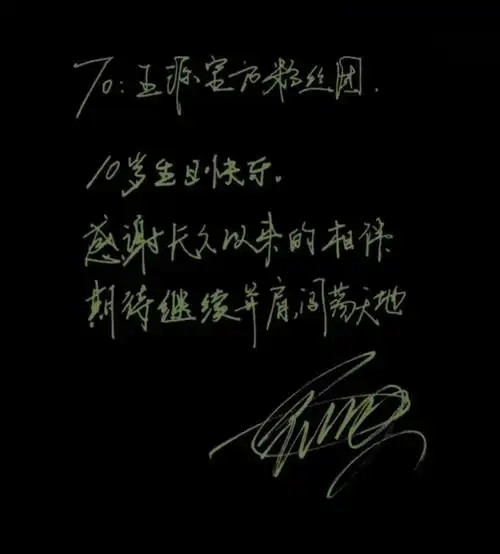 To:王琛官方粉丝团.
10岁生日快乐。
感谢长久以来的相伴
期待继续并肩,闯荡天地